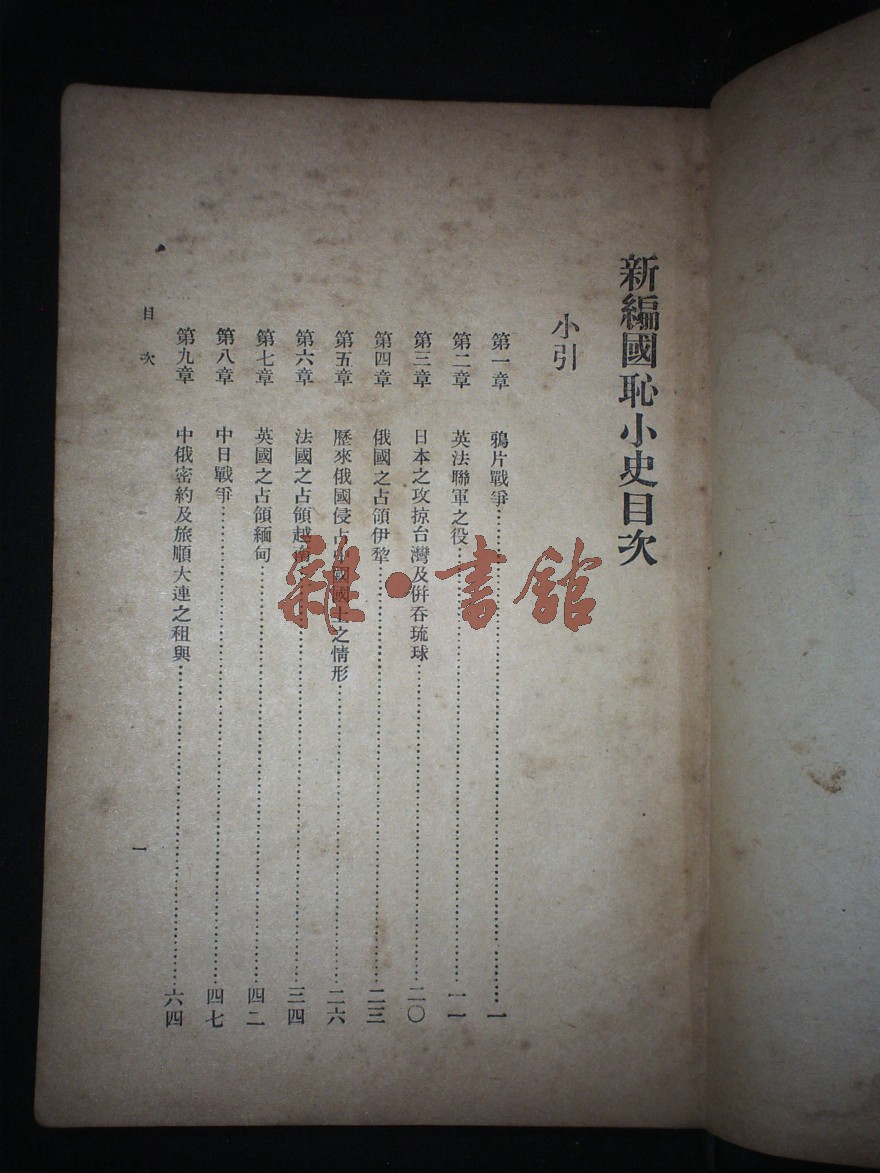 新編國恥小史目次
小引
第一章 鴉片戰爭……一
第二章 英法聯軍之役……一一
第三章 日本之攻掠台灣及併吞琉球……二〇
第四章 俄國之占領伊犂……二三
第五章 歷來俄國侵占中國國土之情形……二六
第六章 法國之占領越南……三四
第七章 英國之占領緬甸……四二
第八章 中日戰爭……四七
第九章 中俄密約及旅順大連之租與……六四
目次 一
雜·書館